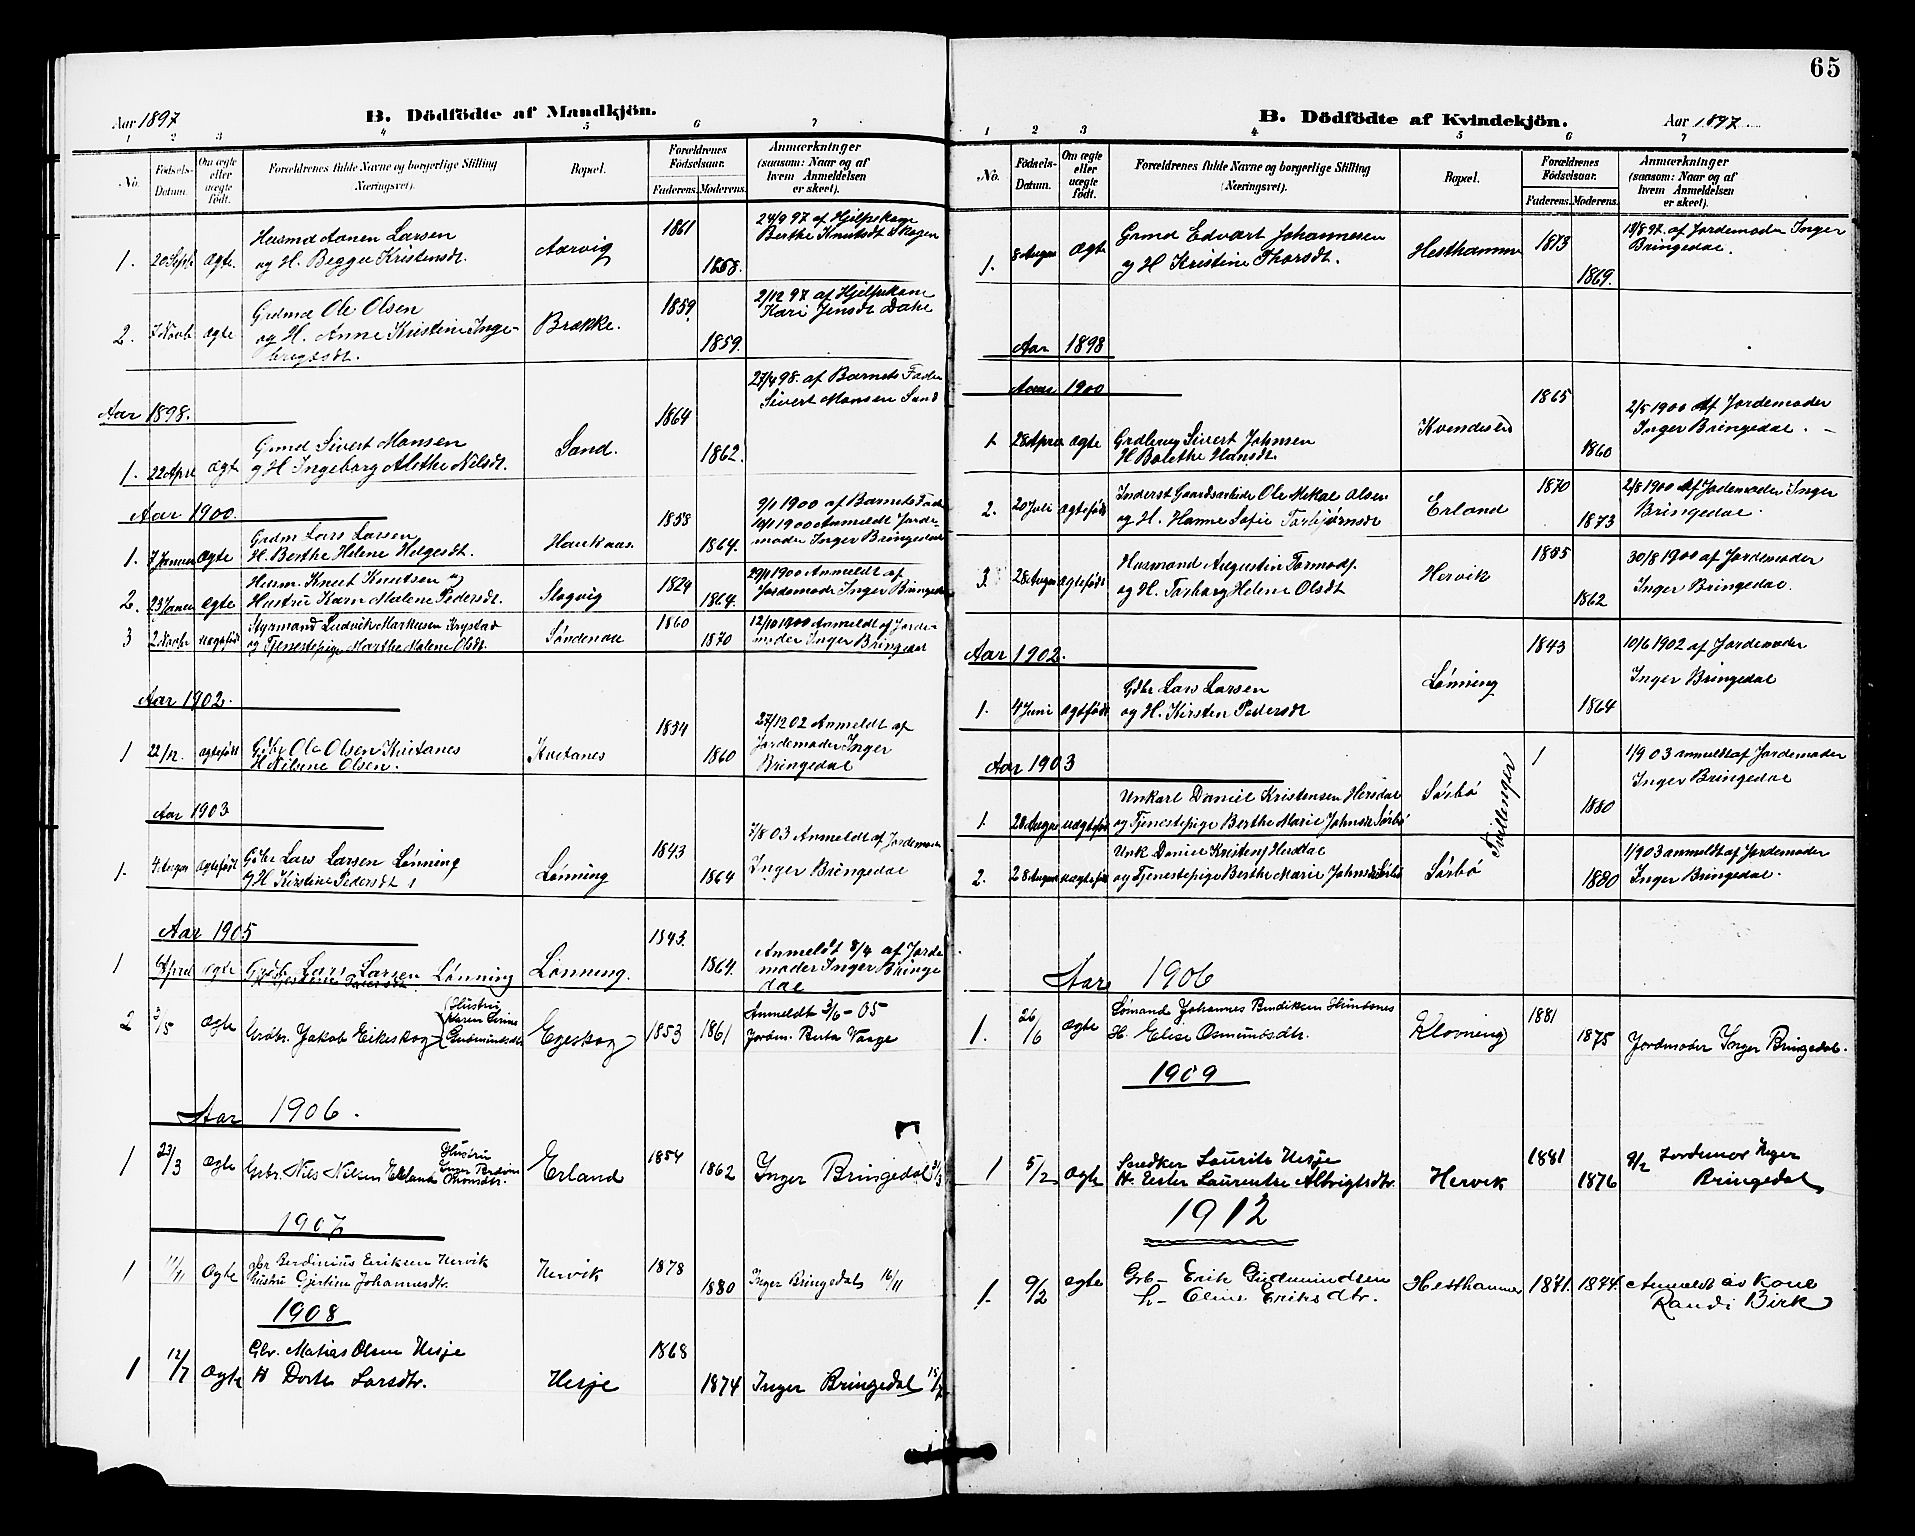 65
Aar 1897
B. Dödfödte af Mandkjön.
1 2 3 4 5 6 7
No.
Födsels-Datum.
Om ægte eller uægte födt.
Forældrenes fulde Navne og borgerlige Stilling (Næringsvei).
Bopæl.
Forældrenes Födselsaar.
Faderens. Moderens.
Anmærkninger (saasom: Naar og af hvem Anmeldelsen er skeet).
1. 20 Sept ægte. Husmd Aanen Larsen
og H. Beggee Kristensdt.
Aarvig 1861 1858.
24/9 97 af Hjelpekone
Berthe Knutsdt Skogen
2. 7 Novb ægte Grdmd Ole Olsen
og H. Anne Kristine Inge-
brigtsdt.
Brække. 1859. 1859.
2/12 97 af Hjelpekone
Kari Jensdt Dahe
Aar 1898.
1. 22 April ægt Grmd Sivert Mansen
og H Ingeborg Alethe Nilsdt.
Sand. 1864 1862.
27/4 98. af Barnets Fader
Sivert Mansen Sand
Aar 1900.
1. 7 Januar ægte Grdm Lars Larsen
H. Berthe Helene Helgesdt.
Haukaas. 1858 1864.
9/1 1900 af Barnets Fad
10/1 1900 Anmeldt Jorde-
moder Inger Bringedal
2. 23 Januar ægte Husm. Knut Knutsen og
Hustru Karn Malene Pedersdt.
Slogvig 1824 1864.
29/1 1900 Anmeldt af
Jordemoder Inger Bringedal
3 2 Novbr uægtefödt Styrmand Ludvik Markusen Krystad
og Tjenestepige Marthe Malene Olsdt.
Søndenaa 1860 1870
12/10 1900 Anmeldt af Jorde-
moder Inger Bringedal
Aar 1902.
1 22/12. ægtefödt Gdbr Ole Olsen Kvitanes
H Nilsine Olsen.
Kvitanes 1834 1860
27/12 02 Anmeldt af
Jordemoder Inger
Bringedal
Aar 1903
1. 4. August ægtefödt Gdbr Lars Larsen Lønning
og H Kirstine Pedersdt
Lønning 1843 1864
7/8 03 Anmeldt af Jordemoder
Inger Bringedal
Aar 1905
1 April ægte Grdb Lars Larsen Lønning
Lønning. 1843. 1864.
Anmeldt 8/4 af Jorde-
moder Inger Bringe
dal
2 3/5 ægte Grdbr. Jakob Eikeskog Hustru
Karen Serine
Gudmundsdtr
Egeskog 1853 1861
Anmeldt 3/6 - 05
Jordm. Berta Vaage
Aar 1906.
1 23/3 ægte Grbr. Nils Nilsen Erland Hustru
Inger
Thomsdtr.
Erland 1854 1862 Inger Bringedal 3/3
1907
1 11/11 ægte gbr Berdinius Eriksen Hervik
hustru Gjertine Johannesdtr.
Hervik 1878 1880 Inger Bringedal 16/11
1908
1 12/7 ægte Gbr. Matias Olsen Hesje
H Dorte Larsdtr.
Hesje 1868 1874 Inger Bringedal 15/7
B. Dödfödte af Kvindekjön.
Aar 1897
1 2 3 4 5 6 7
No.
Födsels-Datum.
Om ægte eller uægte födt.
Forældrenes fulde Navne og borgerlige Stilling (Næringsvei).
Bopæl.
Forældrenes Födselsaar.
Faderens. Moderens.
Anmærkninger (saasom: Naar og af hvem Anmeldelsen er skeet).
1. 8 August ægte Grmd Edvart Johannesen
og H Kristine Thorsdt.
Hesthammer 1873 1869.
18/8 97. af Jordemoder Inger
Bringedal.
Aar 1898
Aar 1900
1 28 April ægte Grdbrug Sivert Johnsen
H Bolethe Hansdt.
Kvendeseid 1865 1860
2/5 1900 Af Jordemoder
Inger Bringedal.
2. 20 Juli ægtefödt Inderst Gaardsarbeider Ole Mikal Olsen
og H. Hanne Sofie Torbjørnsdt
Erland 1870 1873
2/8 1900 Af Jordemoder Inger
Bringedal.
3. 28 August ægtefödt Husmand Augustin Tormodsen
og H. Torborg Helene Olsdt
Hervik 1855 1862
30/8 1900 af Jordemoder
Inger Bringedal.
Aar 1902.
1. 4 Juni ægtefödt Gdbr Lars Larsen
og H. Kirsten Pedersdt
Lønning 1843 1864
10/6 1902 af Jordemoder
Inger Bringedal
Aar 1903
1. 28 August uægtefödt Unkarl Daniel Kristensen Hersdal
og Tjenestepige Berthe Marie Johnsdt Sørbø
Sørbø 1 1880
1/9 03 anmeldt af Jordemoder
Inger Bringedal
Tvillinger
2. 28 August uægtefödt Unk Daniel Kristens Hersdal
og Tjenestepige Berthe Marie Johnsdt Sørbø
Sørbø 1880
1/9 03 anmeldt af Jordemoder
Inger Bringedal.
Aar 1906
1. 26/6 ægte Sømand Johannes Bendiksen
H. Elise Osmundsdtr.
Klovning 1881 1875 Jordemoder Inger Bringedal.
1909
1 5/2 ægte Snedker Laurits Hesje
H. Ester Laurentse Albrigtsdtr.
Hervik 1881 1876
9/2 Jordemor Inger
Bringedal
1912
1. 9/2 ægte Grb- Erik Gudmundsen
h- Eline Eriksdtr.
Hesthammer 1871. 1874. Anmeldt av Kone
Randi Birk